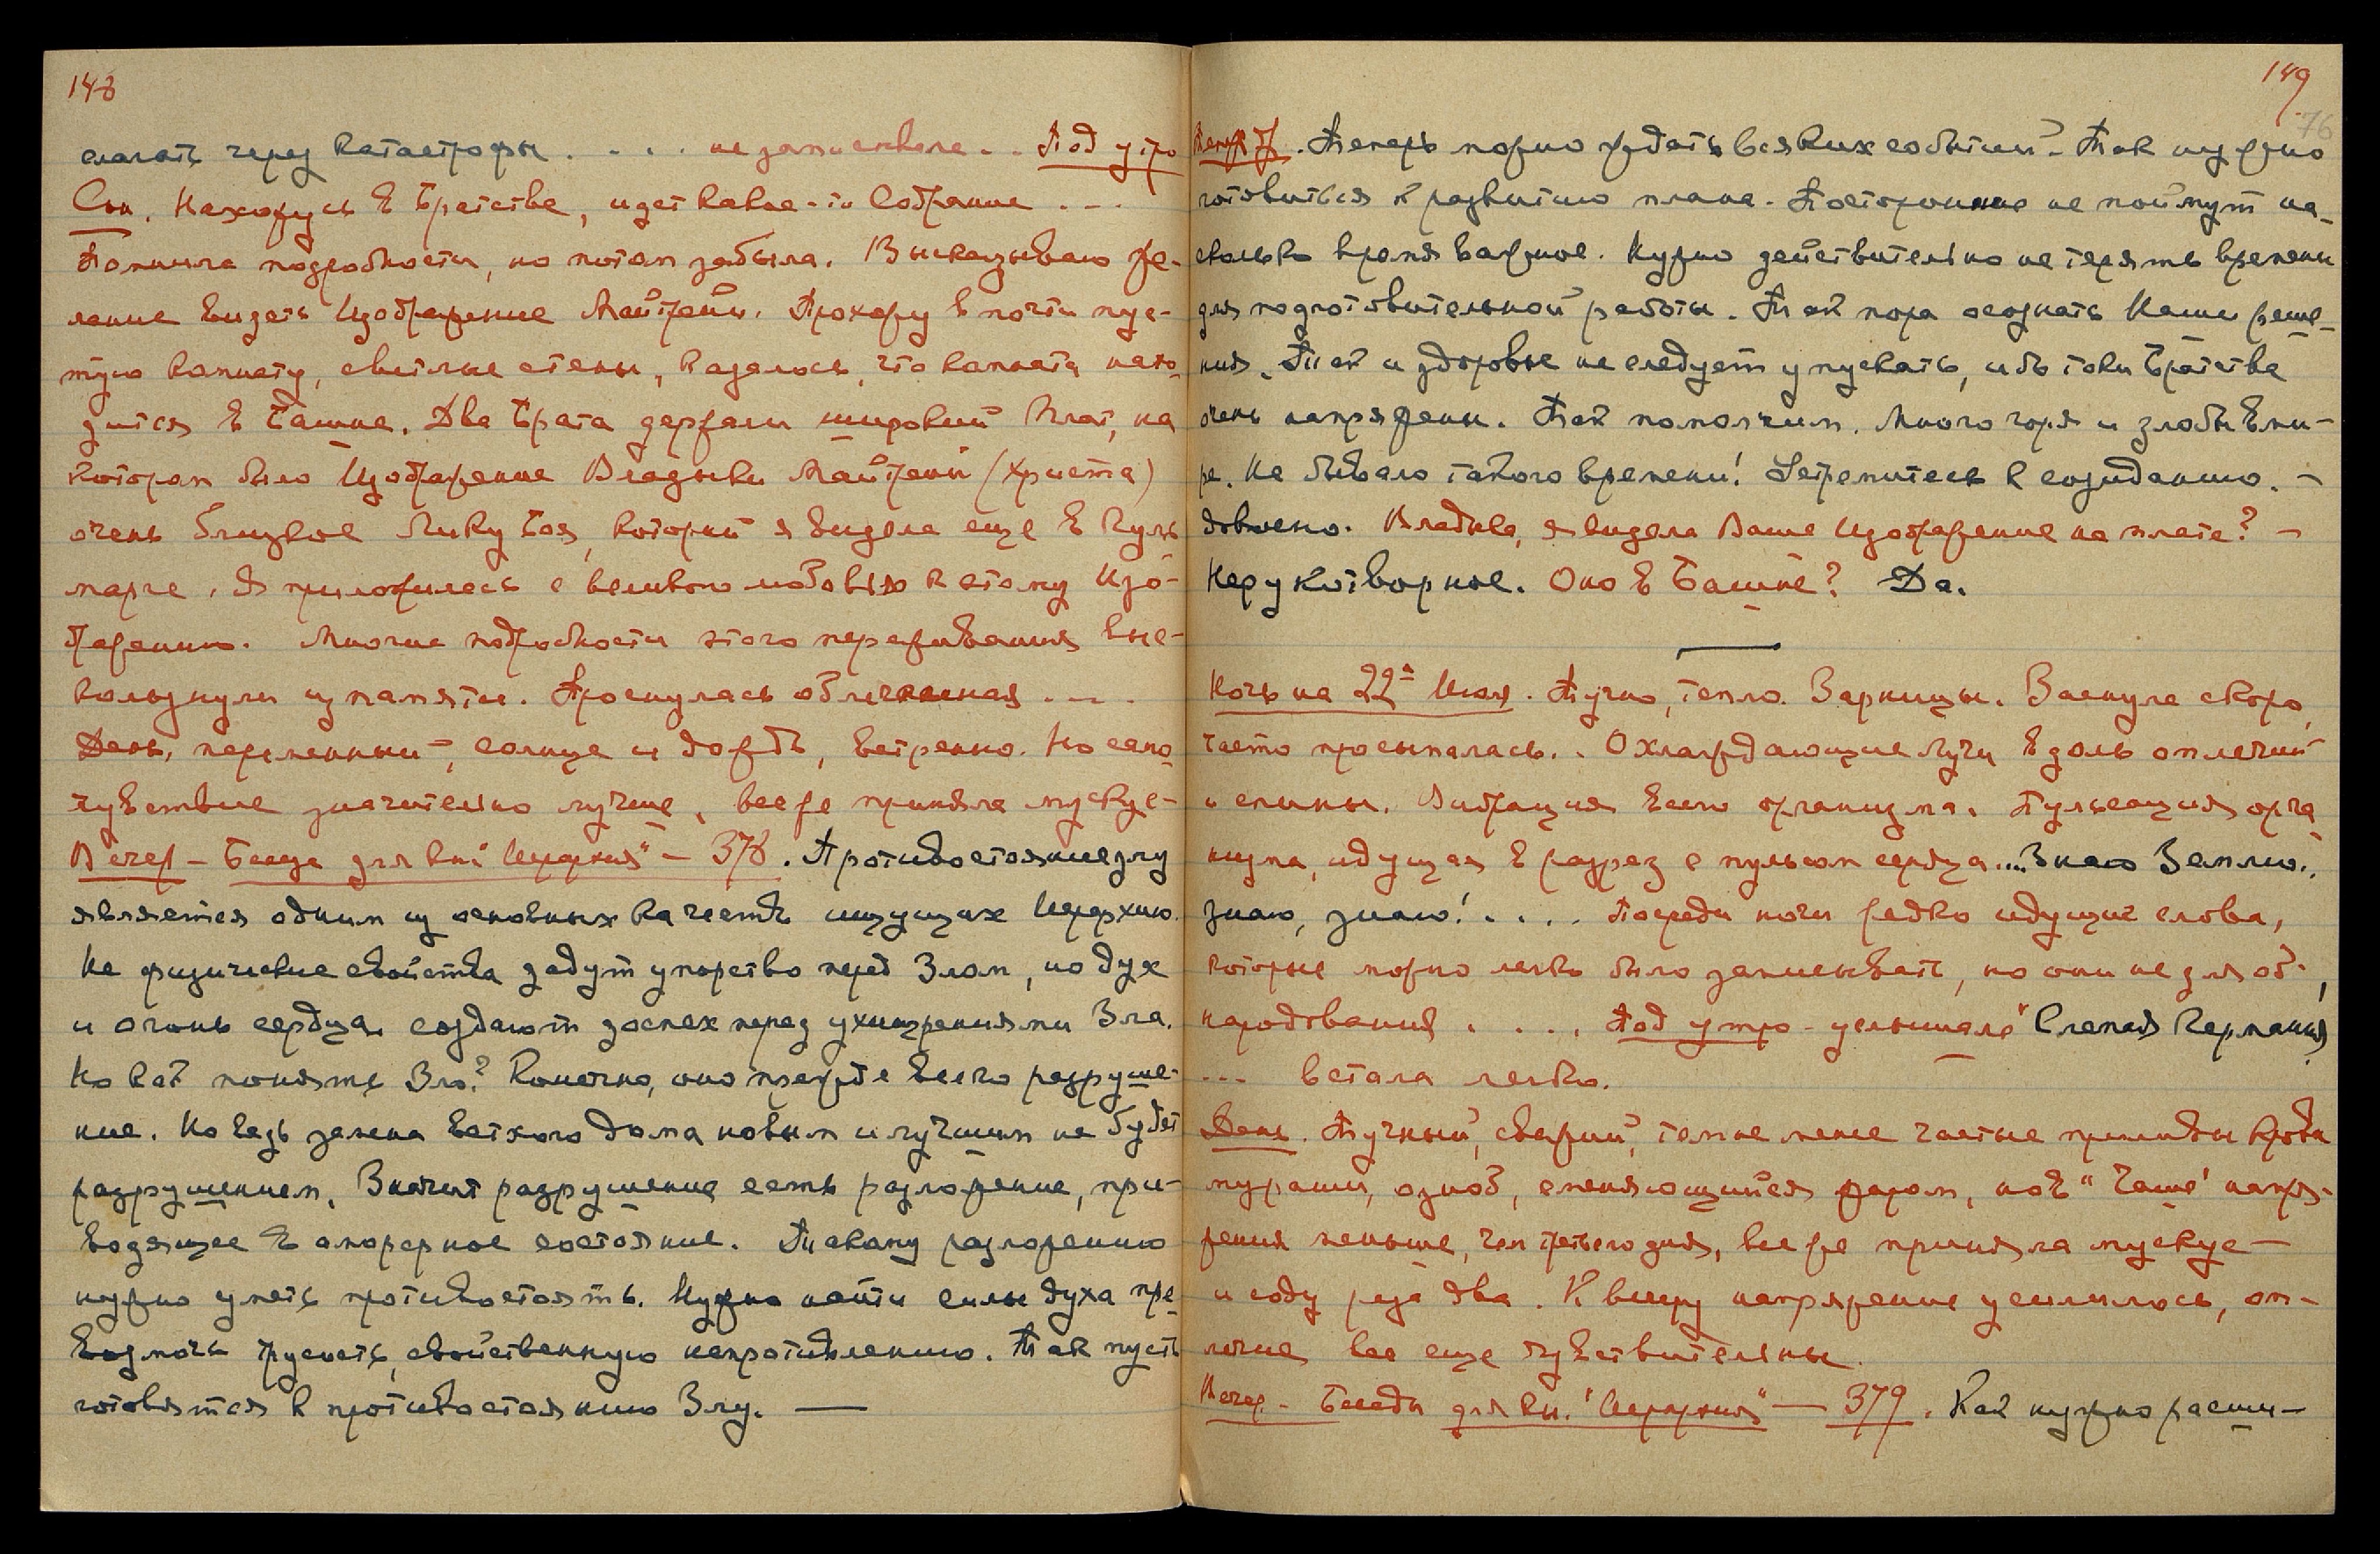 148
слагать через катастрофы . . . . не записывала . . Под утро
Сон. Нахожусь в Братстве, идет какое-то Собрание . . .
Помнила подробности, но потом забыла. Высказываю же-
лание видеть Изображение Майтрейи. Прохожу в почти пус-
тую комнату, светлые стены, казалось, что комната нахо-
дится в Башне. Два Брата держали широкий Плат, на
котором было Изображение Владыки Майтрейи (Христа)
очень близкое Лику Боя, который я видела еще в Куль
марге. Я приложилась с великою любовью к этому Изо-
бражению. Многие подробности этого переживания выс-
кользнули из памяти. Проснулась облегченная . . .
День, переменный, солнце и дождь, ветренно. Но само
чувствие значительно лучше, все же приняла мускус-
Вечер – Беседа для кн. "Иерархия" – 378. Противостояние злу
является одним из основных качеств ищущих Иерархию.
Не физические свойства дадут упорство перед Злом, но дух
и огонь сердца создают доспех перед ухищрениями Зла.
Но как понять Зло? Конечно, оно прежде всего разруше-
ние. Но ведь замена ветхого дома новым и лучшим не будет
разрушением. Значит разрушение есть разложение, при-
водящее в аморфное состояние. Такому разложению
нужно уметь противостоять. Нужно найти силы духа пре-
возмочь трусость, свойственную непротивлению. Так пусть
готовятся к противостоянию Злу. —
149
76
Теперь можно ждать всяких событий – Так нужно
готовиться к развитию плана. Посторонние не поймут на-
сколько время важное. Нужно действительно не терять времени
для подготовительной работы. Так пора осознать Наши реше-
ния. Так и здоровье не следует упускать, ибо токи Братства
очень напряжены. Так помолчим. Много горя и злобы в ми-
ре. Не бывало такого времени! Устремитесь к созиданию. –
Довольно. Владыка, я видела Ваше Изображение на плате? –
Нерукотворное. Оно в Башне? Да.
Ночь на 22ое Июля. Тучно, тепло. Зарницы. Заснула скоро,
часто просыпалась. . Охлаждающие лучи вдоль оплечий
и спины. Вибрация всего организма. Пульсация орга
низма, идущая в разрез с пульсом сердца .... Знаю Землю.,
знаю, знаю! . . . . Посреди ночи редко идущие слова,
которые можно легко было записывать, но они не для об-
народования . . . . Под утро – услышала "Слепая Германия
. . . Встала легко.
День. Тучный, свежий, тем не менее частые приливы крови
мураши, озноб, сменяющийся жаром, но в "Чаше" напря-
жения меньше, чем третьего дня, все же приняла мускус –
и соду раза два. К вечеру напряжение усилилось, оп-
лечия все еще чувствительны.
Вечер – Беседа для кн. "Иерархия" – 379. Как нужно расши-